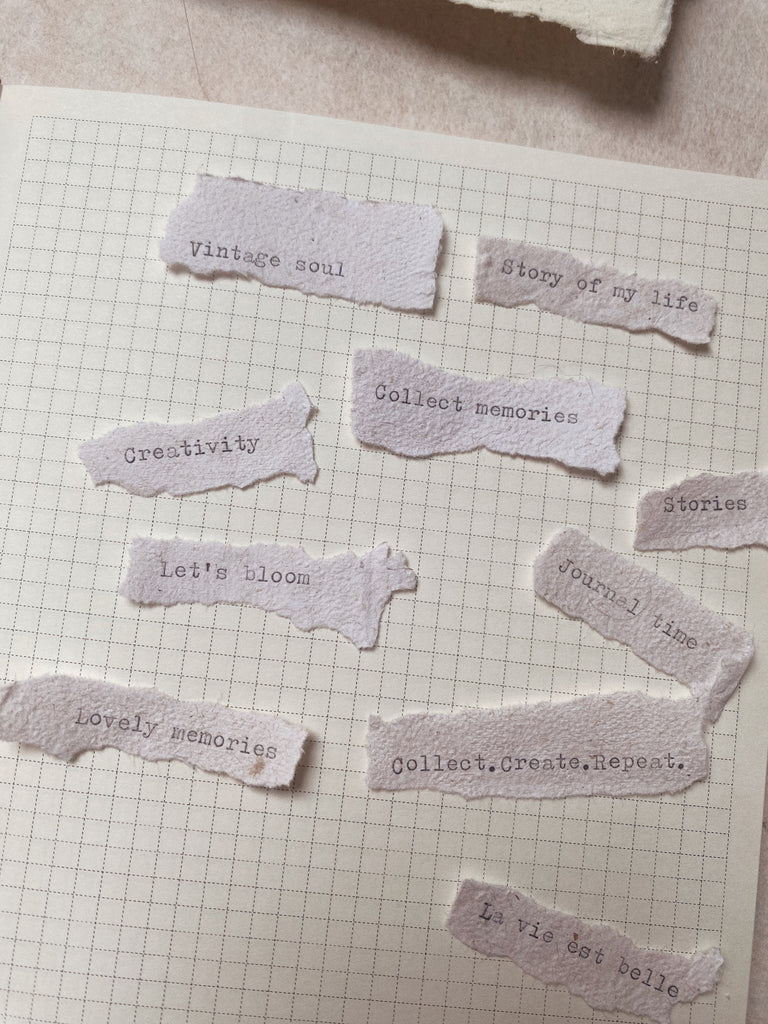 Vintage soul
Story of my life
Collect memories
Creativity
Stories
Let's bloom
Journal time
Lovely memories
Collect.Create.Repeat.
La vie est belle